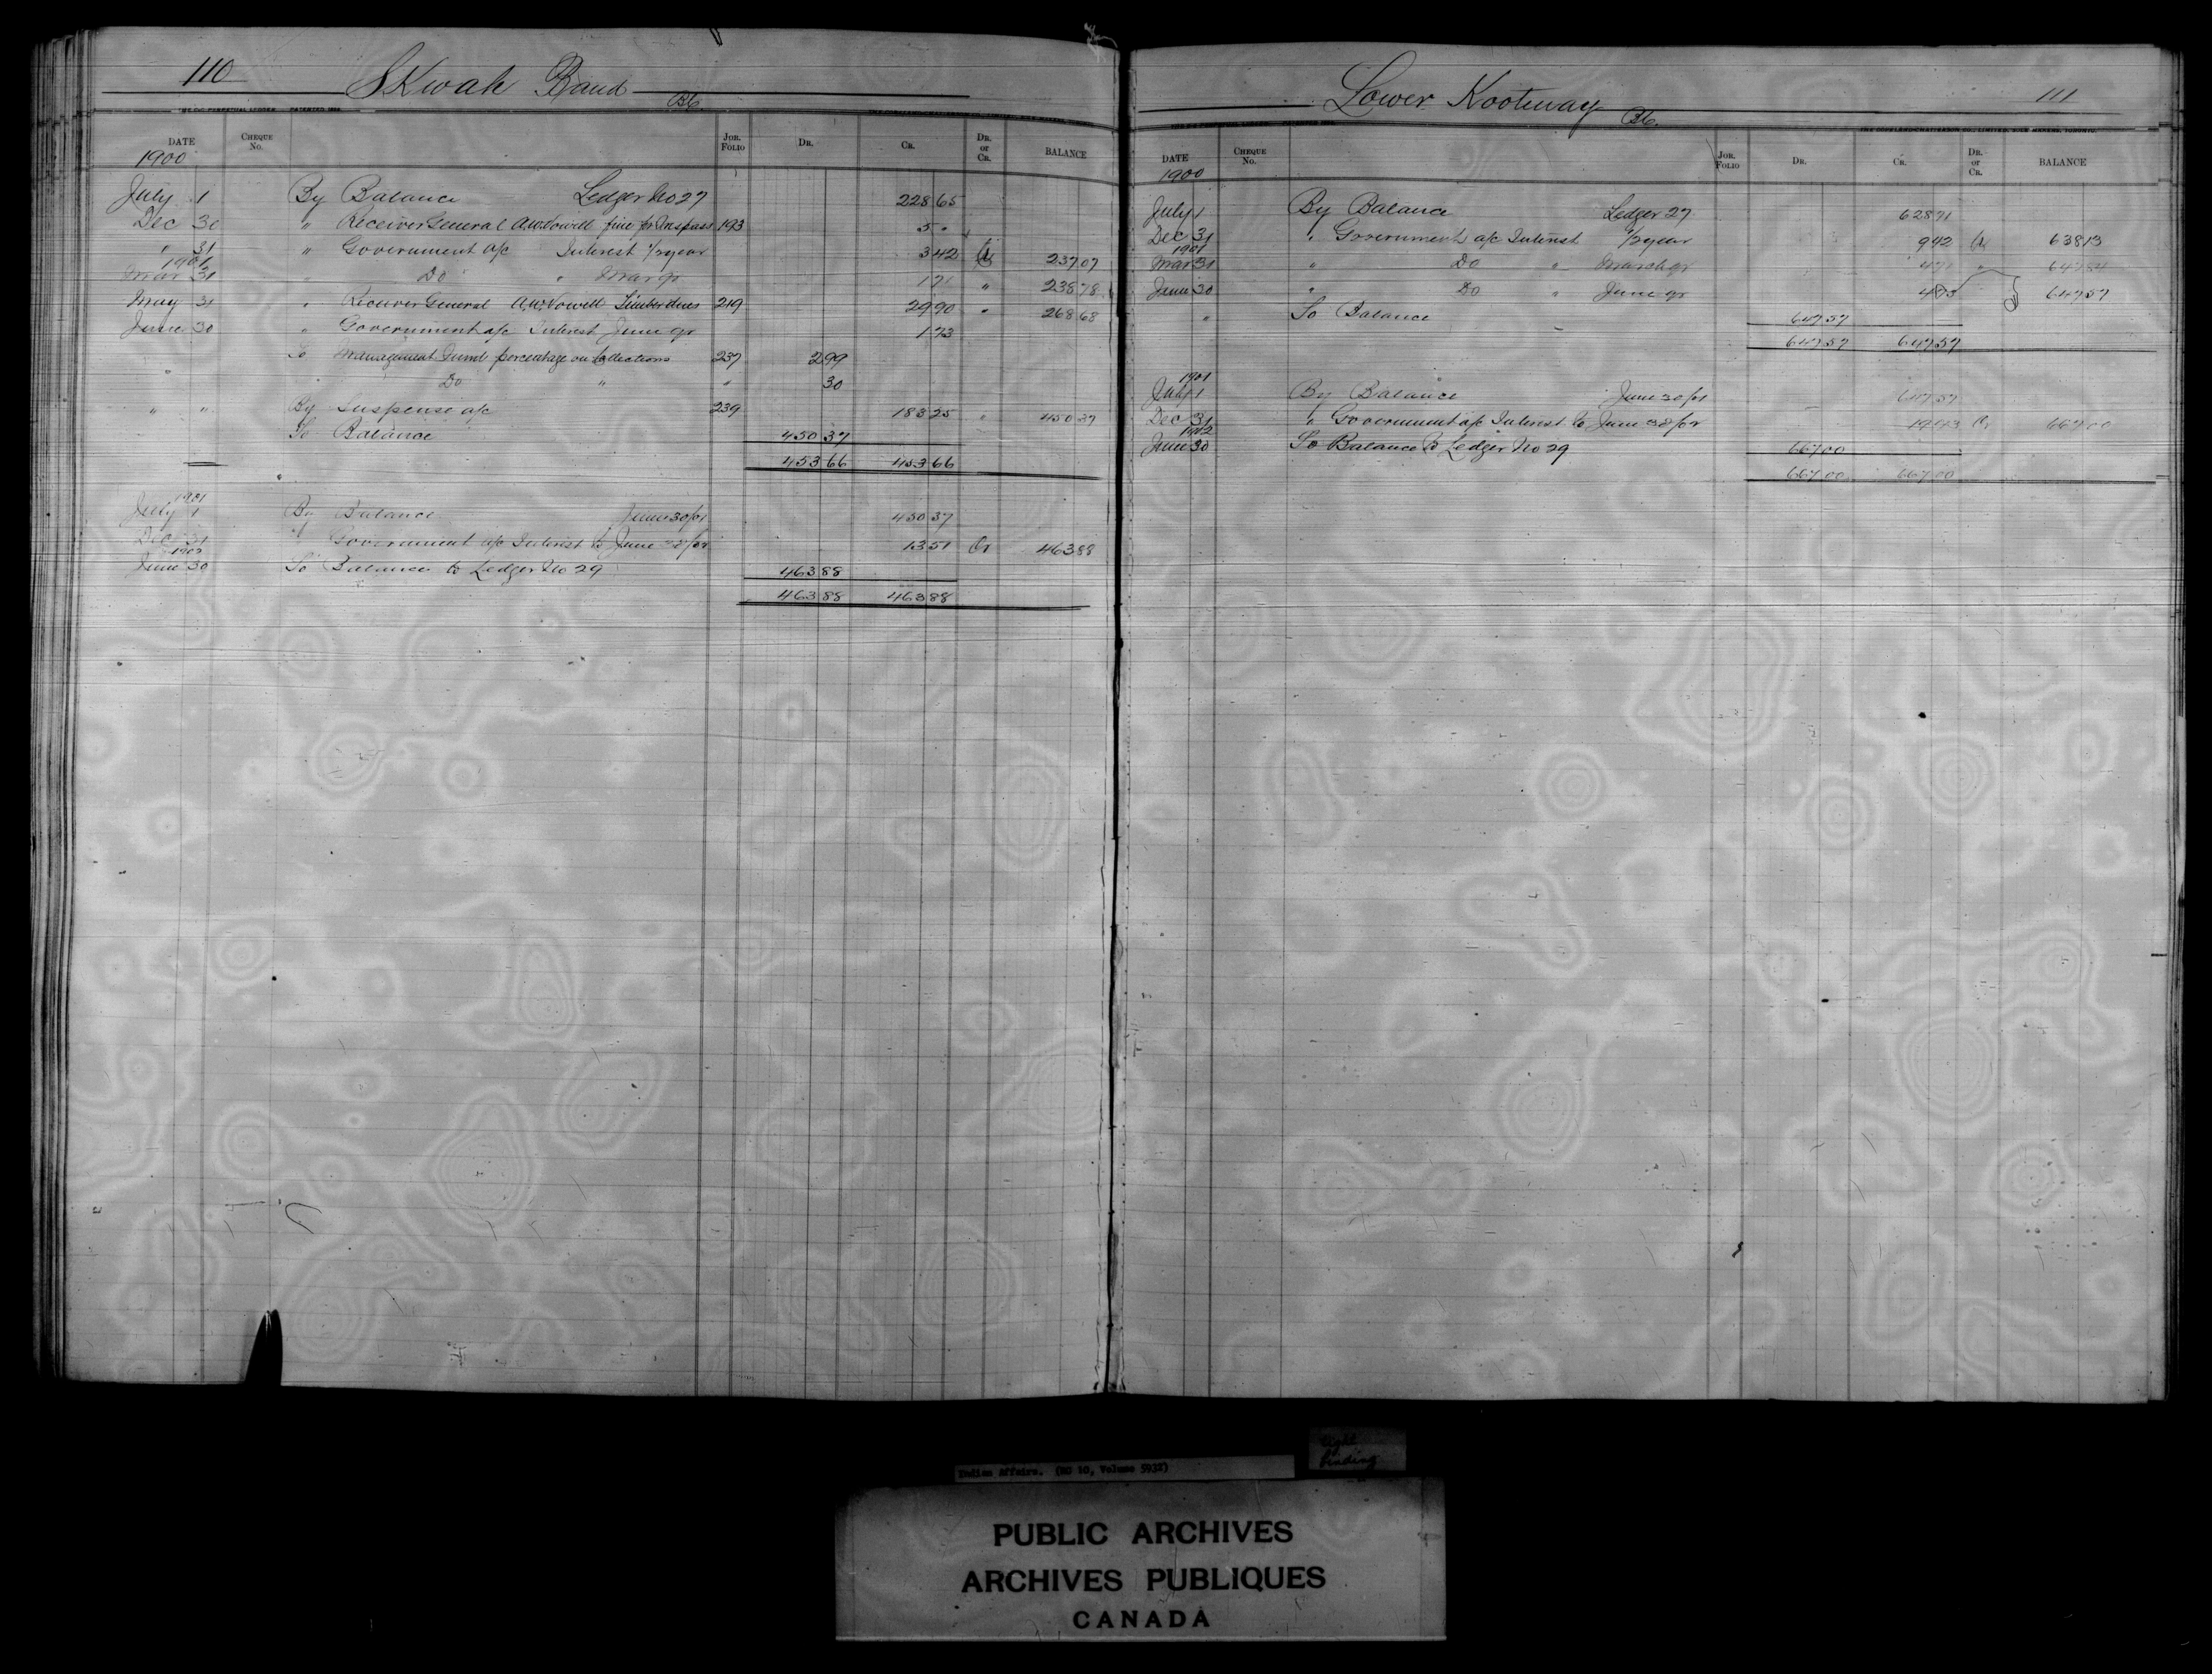 110 SKwah Band BC.
DATE Cheque No. Jor. Folio Dr. Cr. Dr. or Cr. BALANCE
1900
July 1 By Balance Ledger No 27 228 65
Dec 30 " Receiver General A.W. Vowell fine for Trespass 193 5 "
" 31 " Government a/c Interest 1/2 year 3 42 Cr 237 07
1901
Mar 31 " Do " Mar qr 1 71 " 238 78
May 31 " Receiver General A.W. Vowell Timber dues 219 29 90 " 268 68
June 30 " Government a/c Interest June qr 1 73
" To Management Fund percentage on Collections 237 2 99
Do " " 30
" " By Suspense a/c 239 183 25 " 450 37
To Balance 450 37
453 66 453 66
1901
July 1 By Balance June 30/01 450 37
Dec 31 " Government a/c Interest to June 30/02 13 51 Cr 463 88
1902
June 30 To Balance to Ledger No 29 463 88
463 88 463 88
Lower Kootenay BC. 111
DATE Cheque No. Jor. Folio Dr. Cr. Dr. or Cr. BALANCE
1900
July 1 By Balance Ledger 27 628 71
Dec 31 " Government a/c Interest 1/2 year 9 42 Cr 638 13
1901
Mar 31 " Do " March qr 4 71 " 642 84
June 30 " Do " June qr 4 73 647 57
" To Balance 647 57
647 57 647 57
1901
July 1 By Balance June 30/01 647 57
Dec 31 " Government a/c Interest to June 30/02 19 43 Cr 667 00
1902
June 30 To Balance to Ledger No 29 667 00
667 00 667 00
Indian Affairs. (RG 10, Volume 5932)
tight binding
PUBLIC ARCHIVES
ARCHIVES PUBLIQUES
CANADA